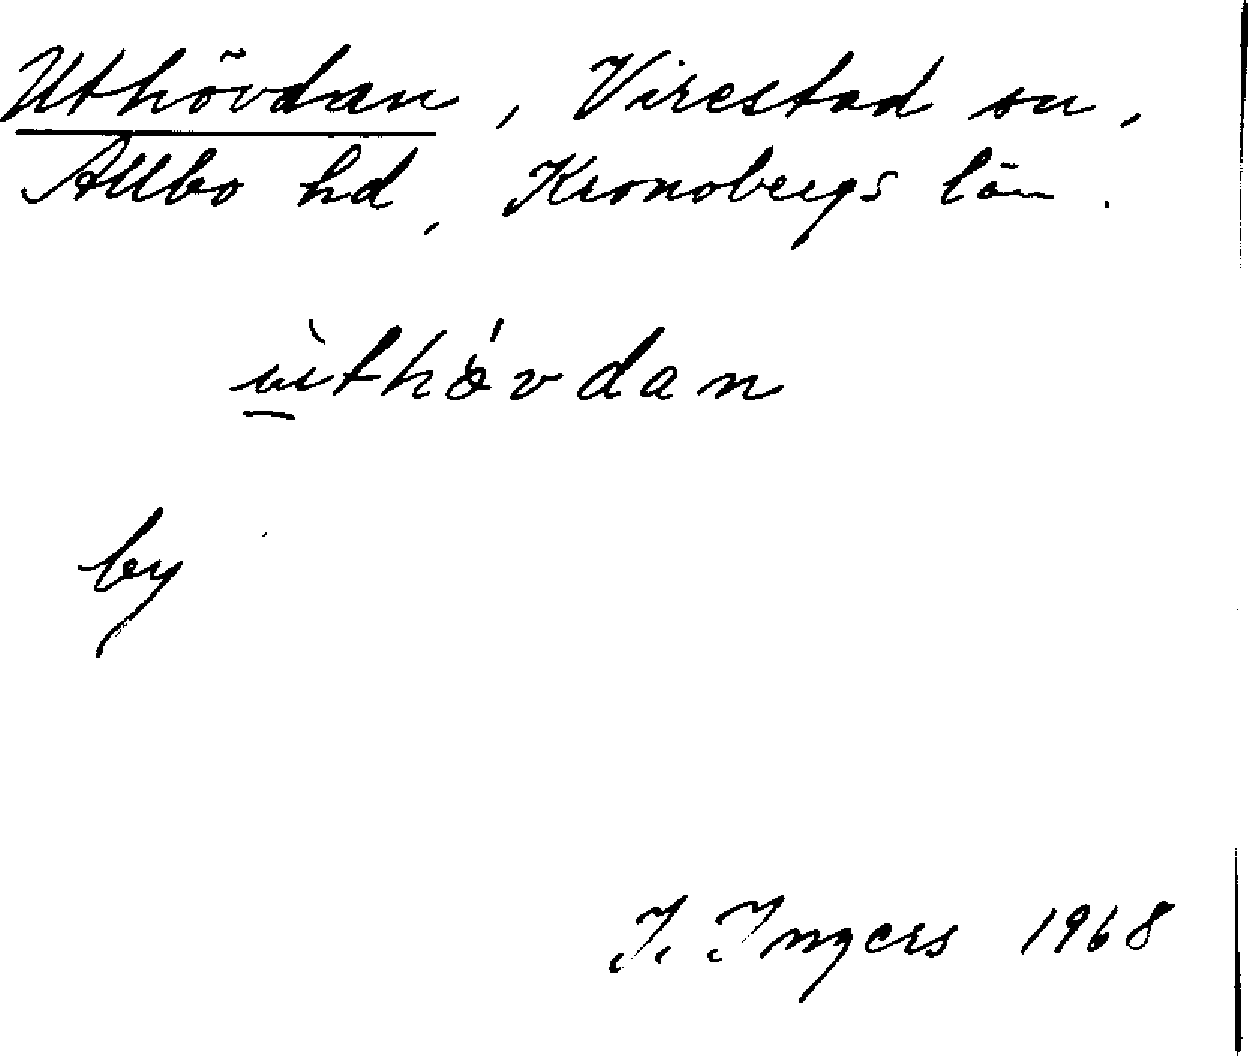 Uthövdan, Virestad sn,
Allbo hd, Kronobergs län.
ùthǿvdan
by
I. Ingers 1968